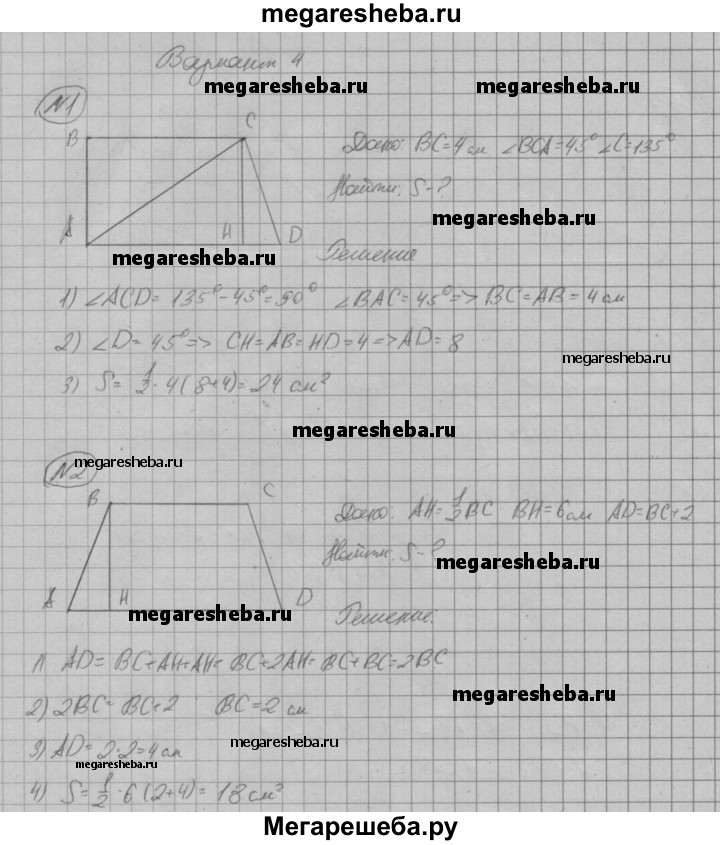 megaresheba.ru
Вариант 4
megaresheba.ru megaresheba.ru
№1
B C
Дано: BC=4 см ∠BCA=45° ∠C=135°
Найти: S-?
megaresheba.ru
A H D
Решение
megaresheba.ru
1) ∠ACD= 135°-45°=90° ∠BAC=45°=> BC=AB=4 см
2) ∠D=45°=> CH=AB=HD=4=>AD=8
megaresheba.ru
3) S= 1/2·4(8+4)=24 см²
megaresheba.ru
№2
megaresheba.ru
B C
Дано: AH=1/2BC BH=6 см AD=BC+2
Найти: S-?
megaresheba.ru
A H D
megaresheba.ru
Решение:
1) AD= BC+AH+AH= BC+2AH= BC+BC=2BC
megaresheba.ru
2) 2BC= BC+2 BC=2 см
megaresheba.ru
3) AD= 2·2=4 см
megaresheba.ru
4) S=1/2·6(2+4)=18 см²
Мегарешеба.ру